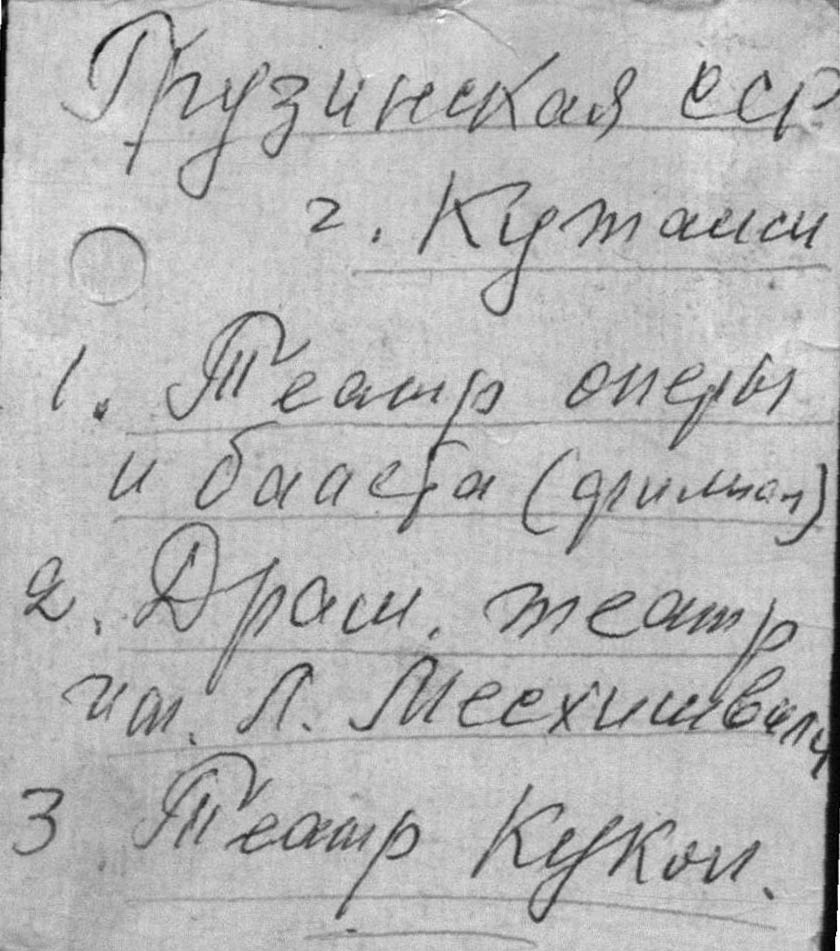 Грузинская ССР
г. Кутаиси
1. Театр оперы
и балета (филиал)
2. Драм. театр
им. Л. Месхишвили
3 Театр Кукол.